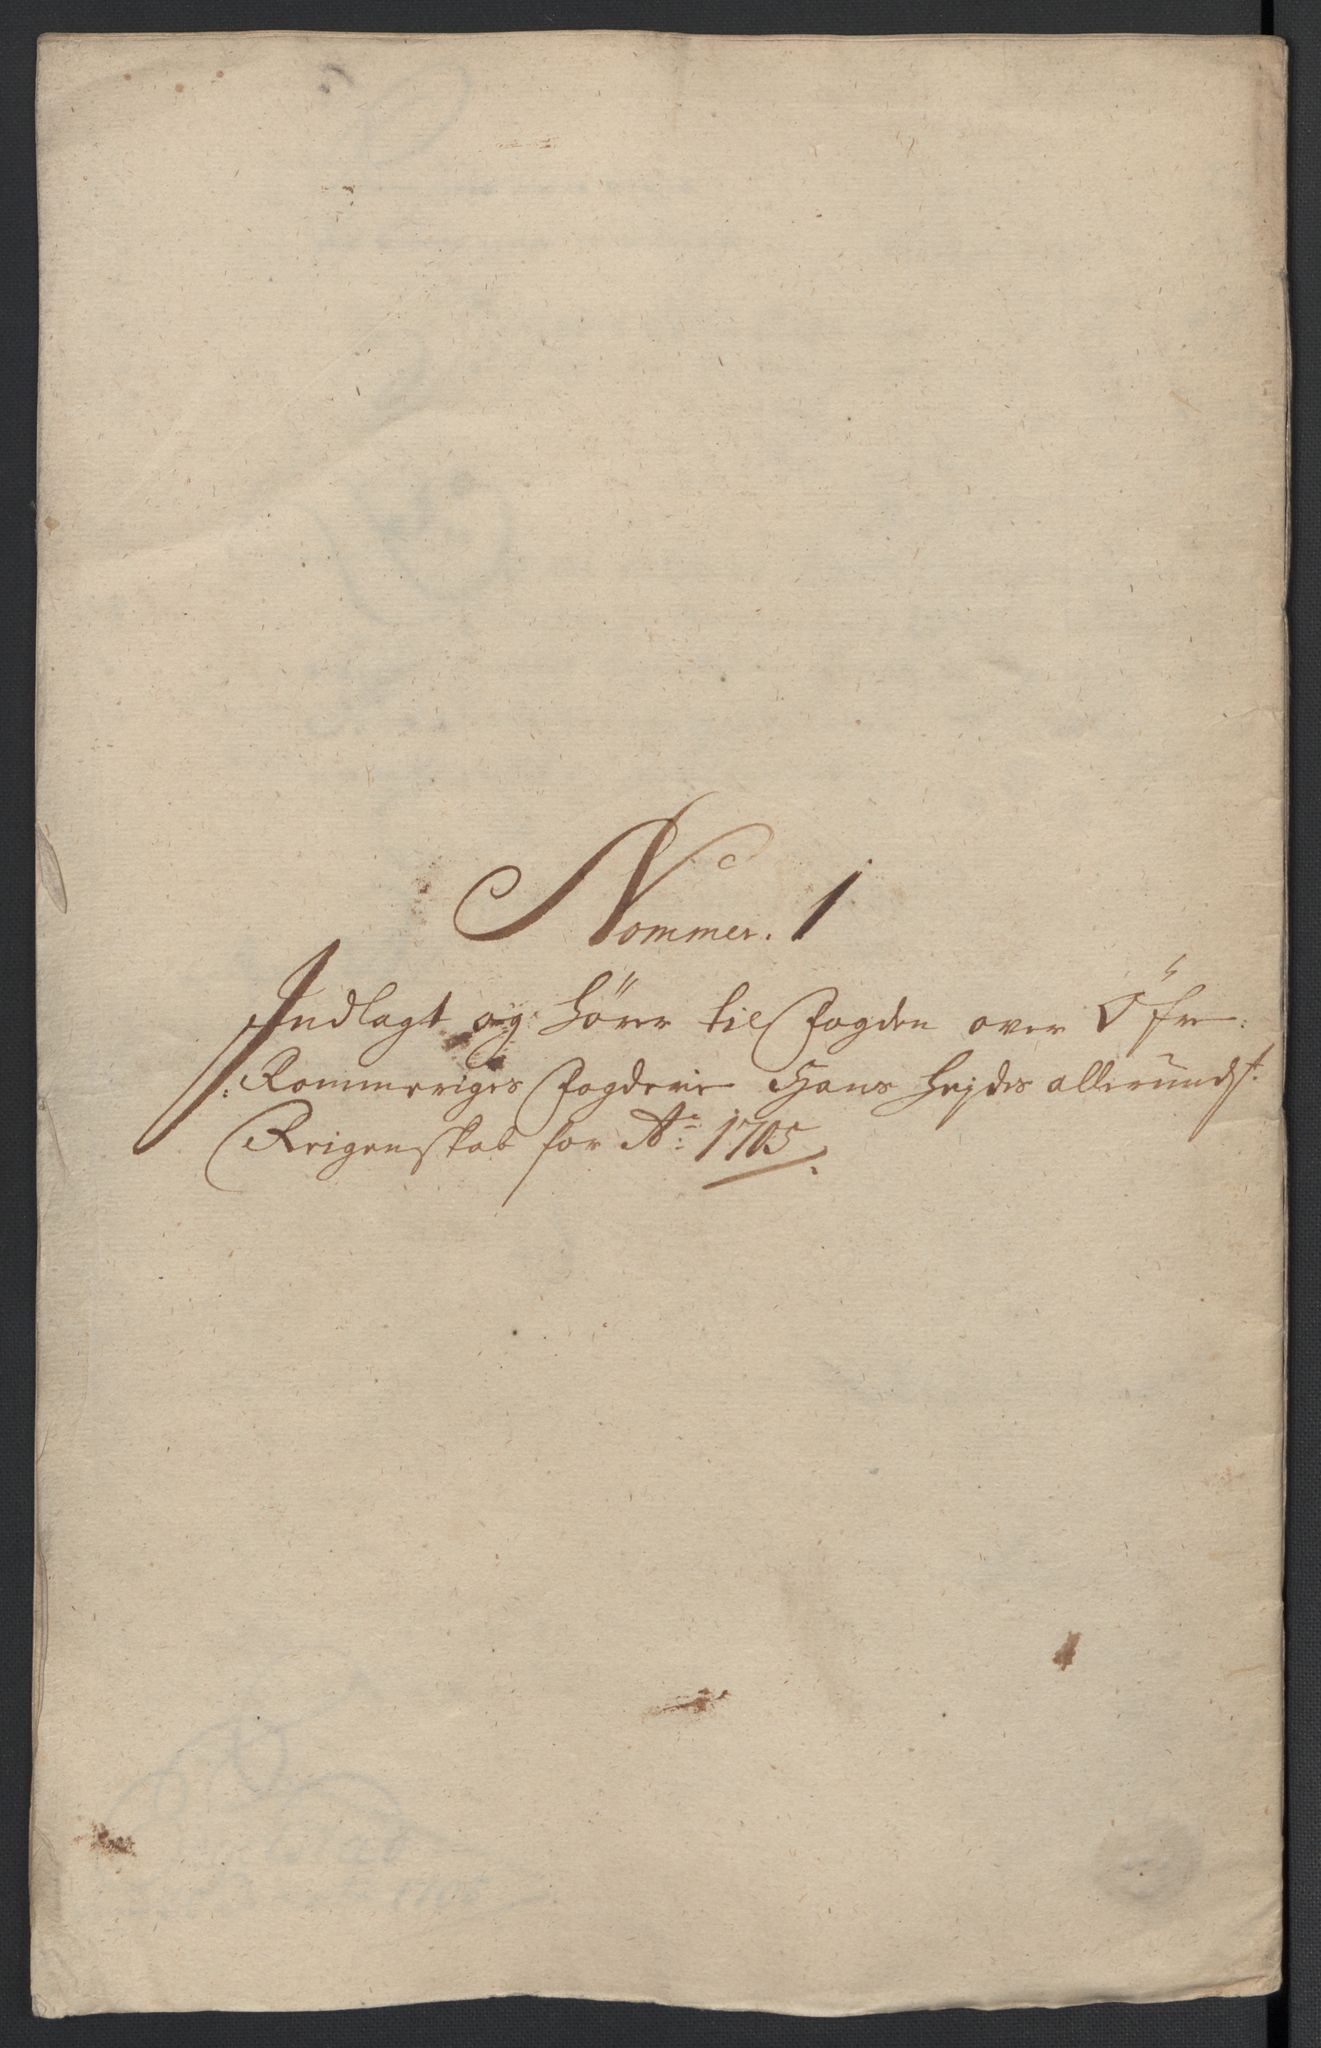 Nommer. 1
Indlagt og hörer til Fogden over Öfre:
:Rommeriges Fogderie Hans Hejdes allerundst.
Reigenskab for Ao: 1705.